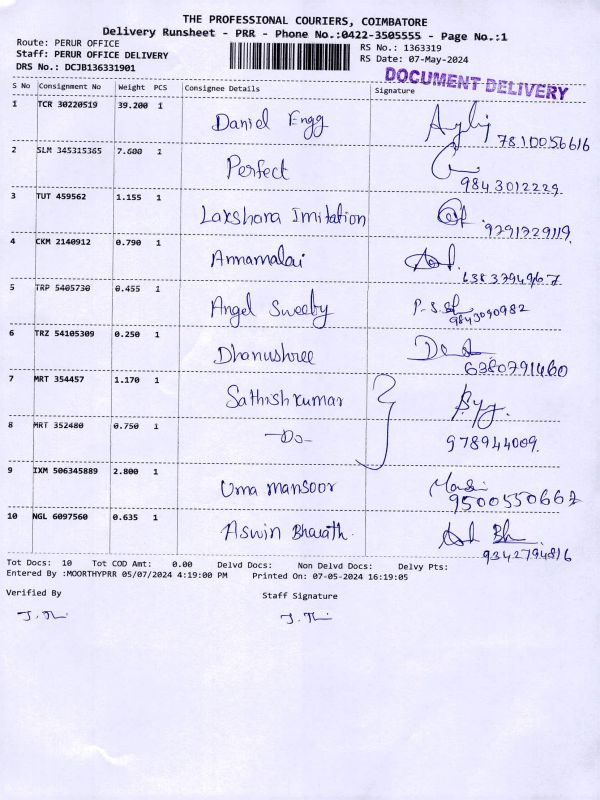 THE PROFESSIONAL COURIERS, COIMBATORE
Delivery Runsheet - PRR - Phone No.:0422-3505555 - Page No.:1
Route: PERUR OFFICE
Staff: PERUR OFFICE DELIVERY
DRS No.: DCJB136331901
RS No.: 1363319
RS Date: 07-May-2024
DOCUMENT DELIVERY
S No Consignment No Weight PCS Consignee Details Signature
1 TCR 30220519 39.200 1 Daniel Engg 7810056616
2 SLM 345315365 7.600 1 Perfect 9843012229
3 TUT 459562 1.155 1 Lakshara Imitation 9291229119
4 CKM 2140912 0.790 1 Annamalai
5 TRP 5405730 0.455 1 Angel Sweeby P.S. 9843090982
6 TRZ 54105309 0.250 1 Dhanushree 6380791460
7 MRT 354457 1.170 1 Sathish kumar
8 MRT 352480 0.750 1 -Do- 978944009.
9 IXM 506345889 2.800 1 Uma mansoor 9500550667
10 NGL 6097560 0.635 1 Aswin Bharath. 9342794816
Tot Docs: 10 Tot COD Amt: 0.00 Delvd Docs: Non Delvd Docs: Delvy Pts:
Entered By :MOORTHYPRR 05/07/2024 4:19:00 PM Printed On: 07-05-2024 16:19:05
Verified By Staff Signature